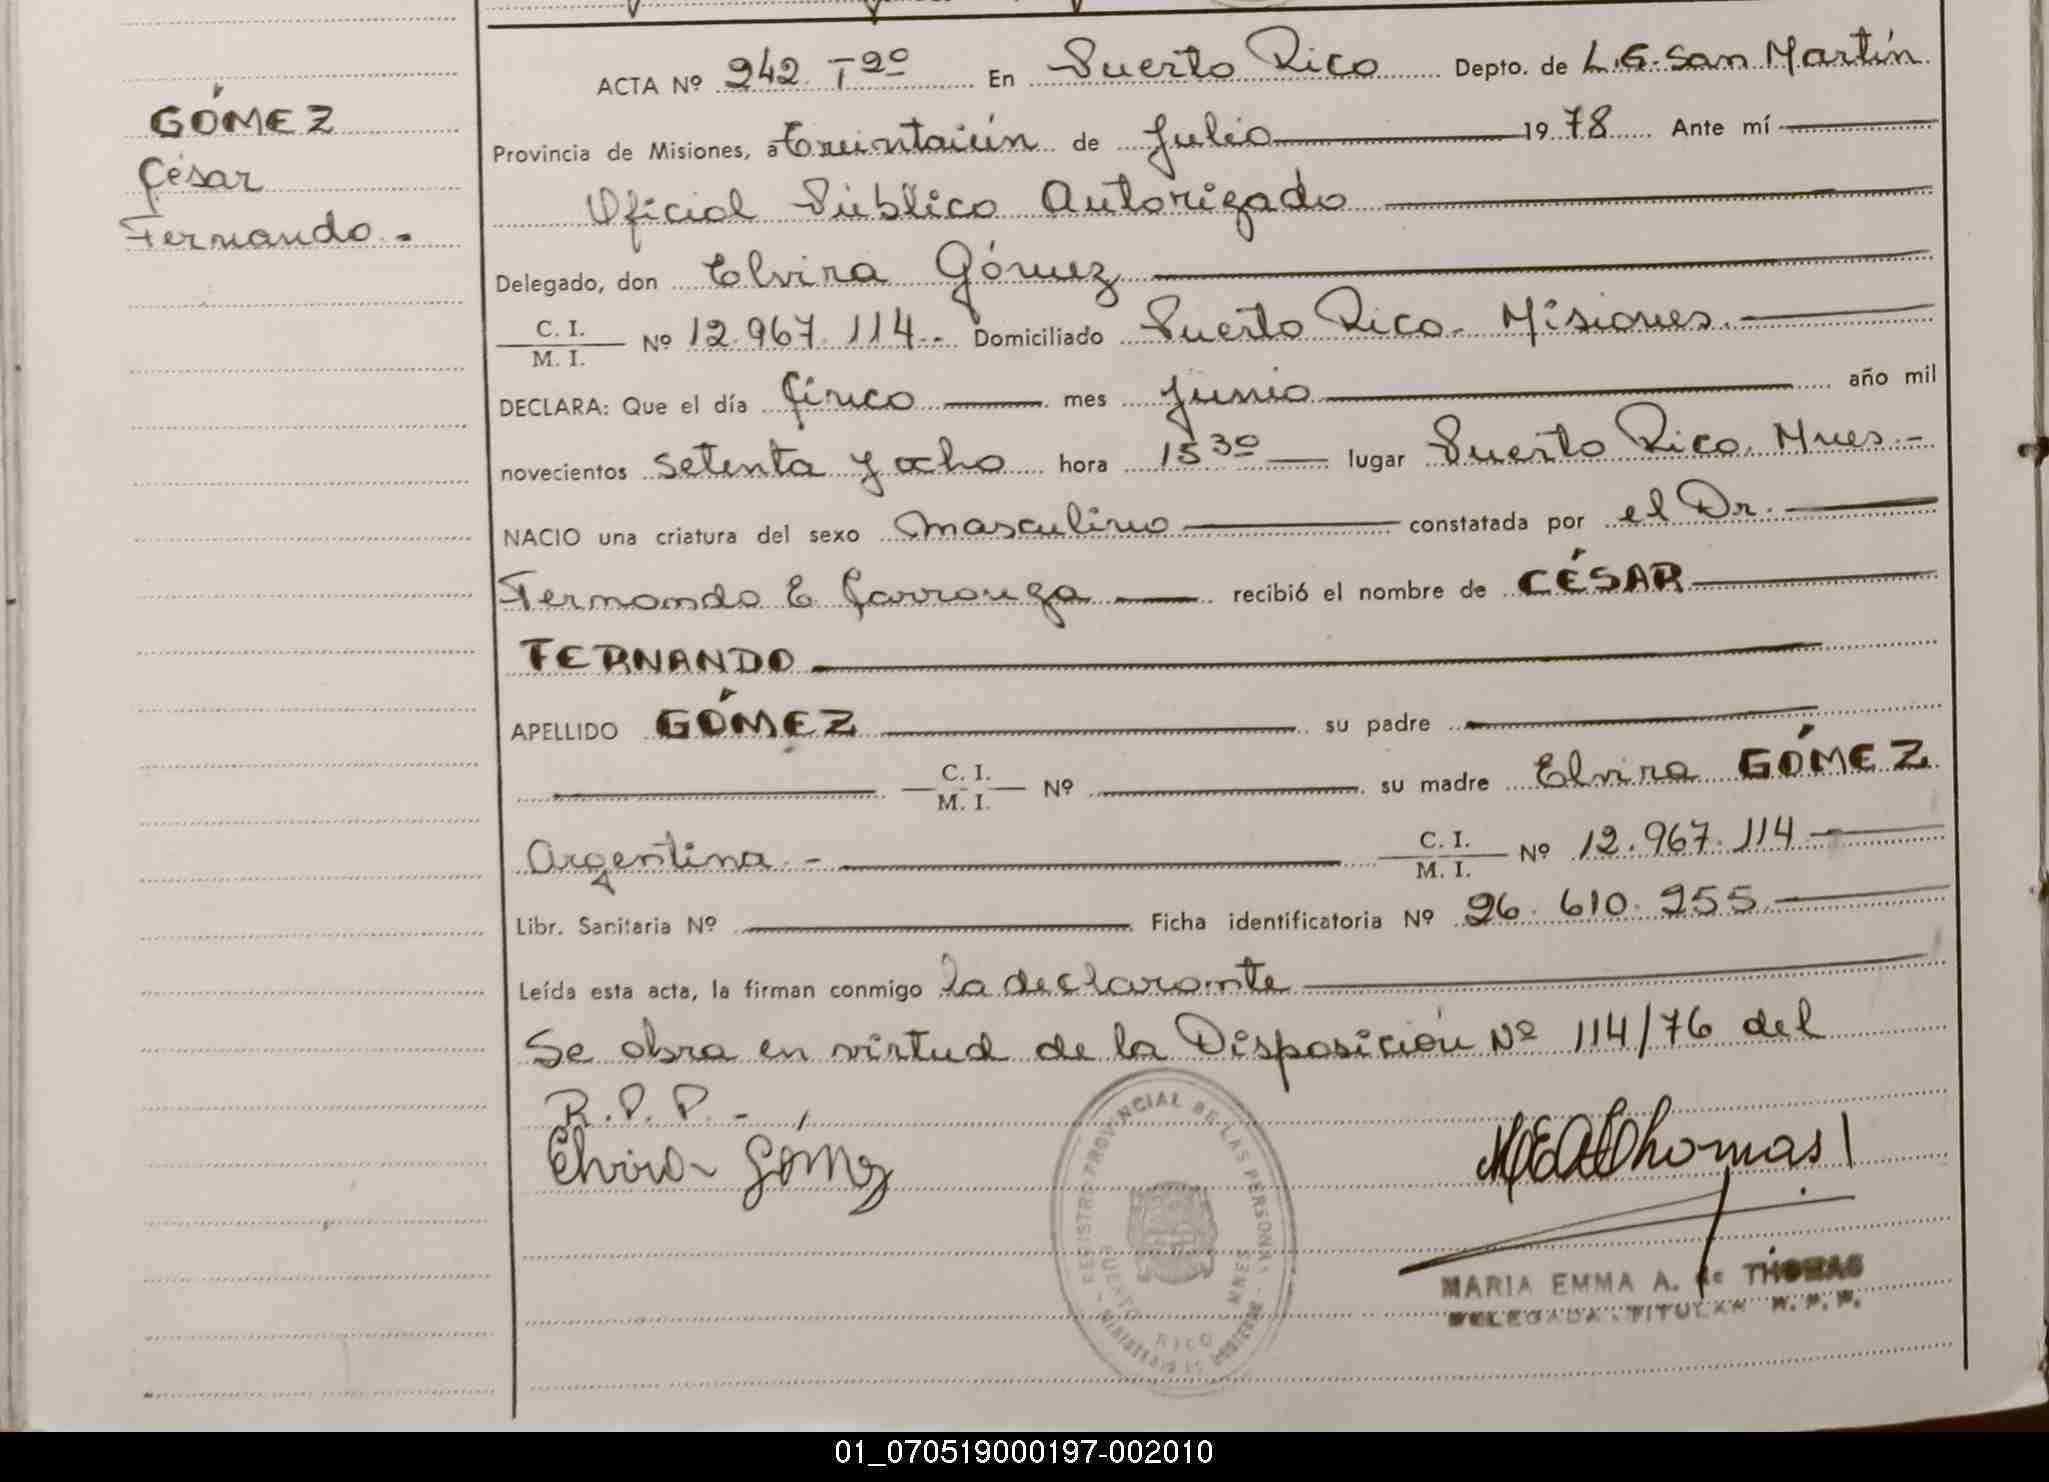 GÓMEZ
César
Fernando.-
ACTA Nº 242 Tº2º En Puerto Rico Depto. de L.G. San Martín
Provincia de Misiones, a Treintaiún de Julio 1978 Ante mí
Oficial Público Autorizado
Delegado, don Elvira Gómez
C. I.
M. I. Nº 12.967.114.- Domiciliado Puerto Rico- Misiones.
DECLARA: Que el día Cinco mes Junio año mil
novecientos setenta y ocho hora 15 30 lugar Puerto Rico, Mnes.-
NACIO una criatura del sexo masculino constatada por el Dr.
Fernando E recibió el nombre de CÉSAR
FERNANDO
APELLIDO GÓMEZ su padre
C. I.
M. I. Nº su madre Elvira GÓMEZ
Argentina.- C. I.
M. I. Nº 12.967.114
Libr. Sanitaria Nº Ficha identificatoria Nº 26.610.255
Leída esta acta, la firman conmigo la declarante
Se obra en virtud de la Disposición Nº 114/76 del
R.P.P.-
Elvira Gómez
REGISTRO PROVINCIAL DE LAS PERSONAS
PUERTO RICO MNES
MINISTERIO DE GOBIERNO
MARIA EMMA A. de THOMAS
DELEGADA TITULAR R.P.P.
01_070519000197-002010